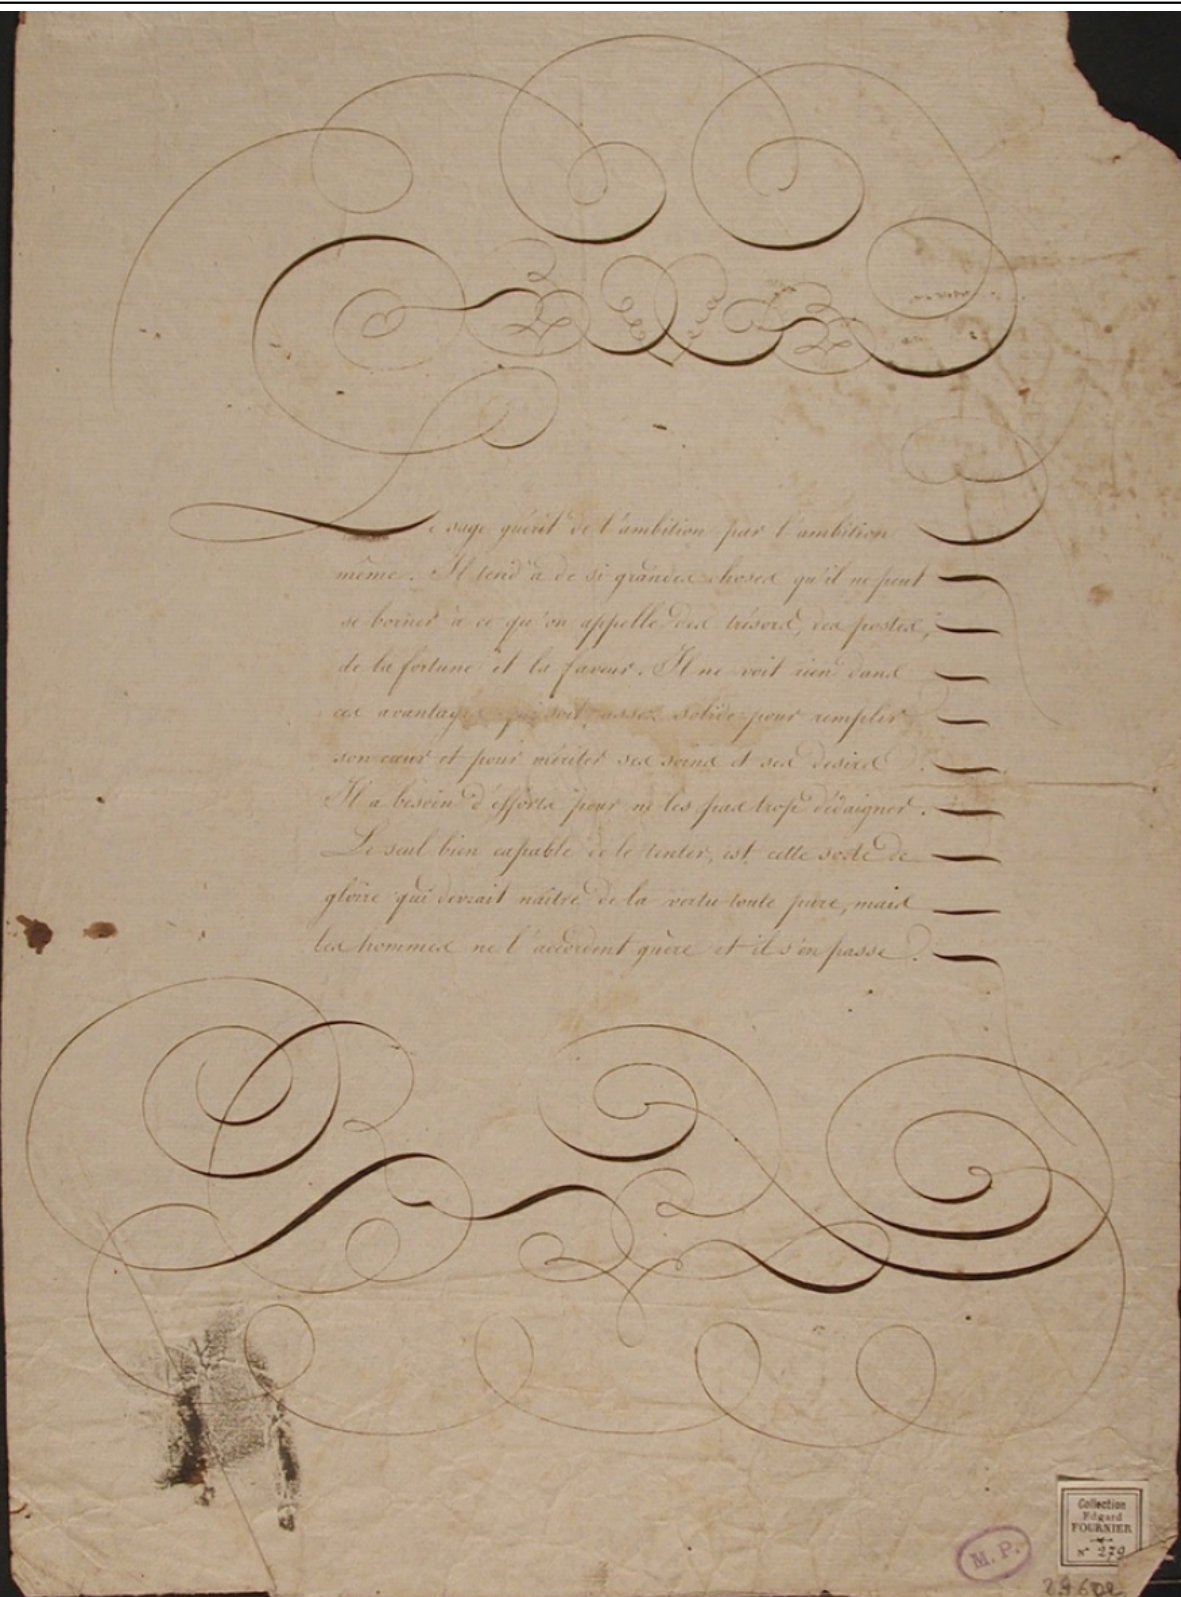 Le sage guérit de l'ambition par l'ambition
même. Il tend à de si grandes choses qu'il ne peut
se borner à ce qu'on appelle des trésors, des postes,
de la fortune et la faveur. Il ne voit rien dans
ces avantages qui soit assez solide pour remplir
son cœur et pour mériter ses soins et ses desirs.
Il a besoin d'efforts pour ne les pas trop dédaigner.
Le seul bien capable de le tenter, est cette sorte de
gloire qui devrait naître de la vertu toute pure, mais
les hommes ne l'accordent guère et il s'en passe.
M. P.
Collection
Edgard
FOURNIER
N° 279